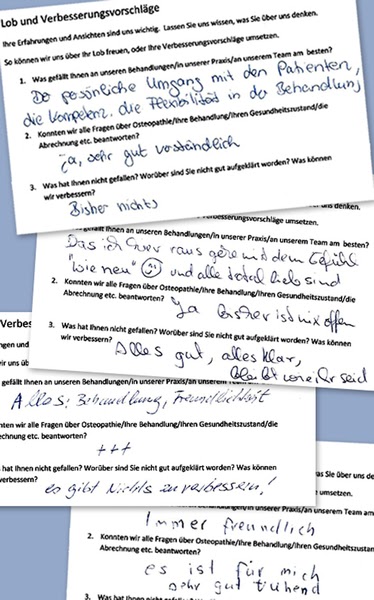 Lob und Verbesserungsvorschläge
Ihre Erfahrungen und Ansichten sind uns wichtig. Lassen Sie uns wissen, was Sie über uns denken.
So können wir uns über Ihr Lob freuen, oder Ihre Verbesserungsvorschläge umsetzen.
1. Was gefällt Ihnen an unseren Behandlungen/in unserer Praxis/an unserem Team am besten?
De persönliche Umgang mit den Patienten,
die Kompetenz, die Flexibilität in der Behandlung
2. Konnten wir alle Fragen über Osteopathie/Ihre Behandlung/Ihren Gesundheitszustand/die
Abrechnung etc. beantworten?
ja, sehr gut verständlich
3. Was hat Ihnen nicht gefallen? Worüber sind Sie nicht gut aufgeklärt worden? Was können
wir verbessern?
Bisher nichts
uns denken.
rbesserungsvorschläge umsetzen.
gefällt Ihnen an unseren Behandlungen/in unserer Praxis/an unserem Team am besten?
Das ich hier raus gehe mit dem Gefühl
"wie neu" und alle total lieb sind
2. Konnten wir alle Fragen über Osteopathie/Ihre Behandlung/Ihren Gesundheitszustand/die
Abrechnung etc. beantworten?
Ja bisher ist nix offen
3. Was hat Ihnen nicht gefallen? Worüber sind Sie nicht gut aufgeklärt worden? Was können
wir verbessern?
Alles gut, alles klar,
bleibt wie ihr seid
Verbes
ngen und
wir uns üb
gefällt Ihnen an unseren Behandlungen/in unserer Praxis/an unserem Team
Alles: Behandlung, Freundlichkeit
nten wir alle Fragen über Osteopathie/Ihre Behandlung/Ihren Gesundheitszustand/die
echnung etc. beantworten?
+++
hat Ihnen nicht gefallen? Worüber sind Sie nicht gut aufgeklärt worden? Was können
verbessern?
es gibt Nichts zu verbessern!
was Sie über uns de
ge umsetzen.
unserer Praxis/an unserem Team am
Immer freundlich
2. Konnten wir alle Fragen über Osteopathie/Ihre Behandlung/Ihren Gesundheitszustan
Abrechnung etc. beantworten?
es ist für mich
sehr gut tuhend
3. Was hat Ihnen nicht gefallen?